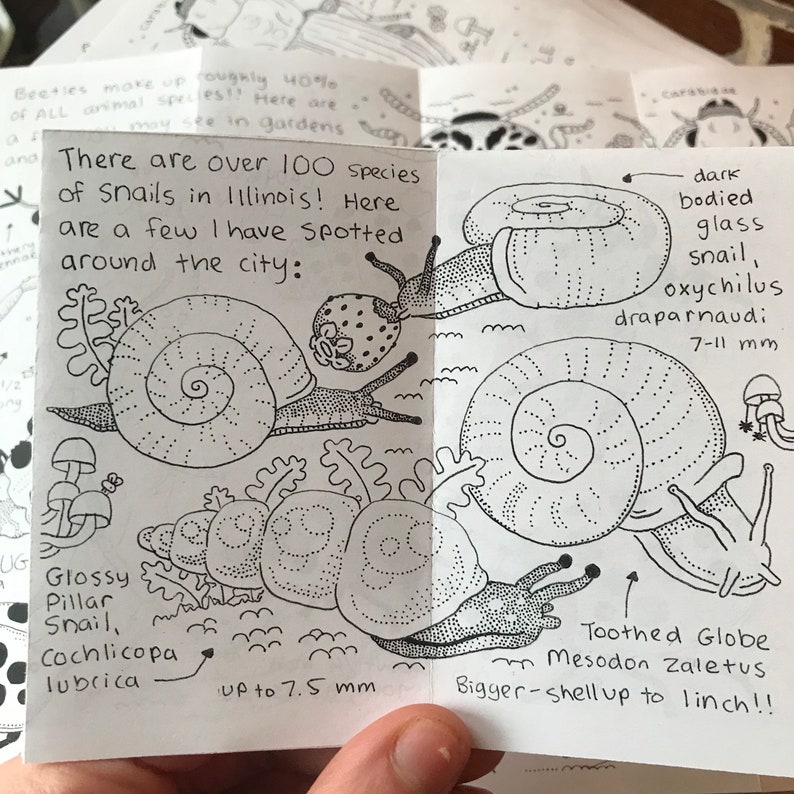 Beetles make up roughly 40%
of ALL animal species!! Here are
may see in gardens
and
carabidae
There are over 100 species
of snails in Illinois! Here
are a few I have spotted
around the city:
dark
bodied
glass
snail,
oxychilus
draparnaudi
7-11 mm
Glossy
Pillar
Snail,
Cochlicopa
lubrica
up to 7.5 mm
Toothed Globe
Mesodon Zaletus
Bigger-shell up to 1 inch!!